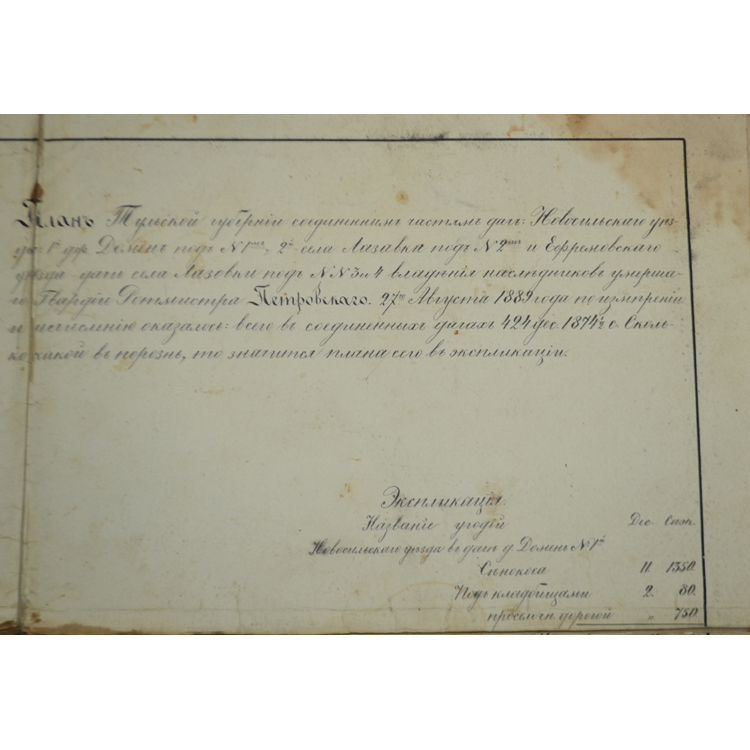 Планъ Тульской губернiи соединеннымъ частямъ дачъ: Новосильскаго уѣз-
да 1я дер. Доминъ подъ №1мъ, 2я села Лазавка подъ №2мъ и Ефремовскаго
уѣзда дачъ села Лазовки подъ №№3 и 4 владѣнiя наслѣдниковъ умерша-
го Гвардiи Ротмистра Петровскаго. 27го Августа 1889 года по измѣренiи
и исчисленiю оказалось: всего въ соединенныхъ дачахъ 424 дес. 1874½ с. Сколь-
ко какой въ порознь, то значится плана сего въ экспликацiи.
Экспликацiя.
Названiе угодiй Дес. Саж.
Новосильскаго уѣзда въ дачѣ д. Доминъ №1й
Сѣнокоса 11. 1350.
Подъ кладбищами 2. 80.
проселочн. дорогой „ 750.